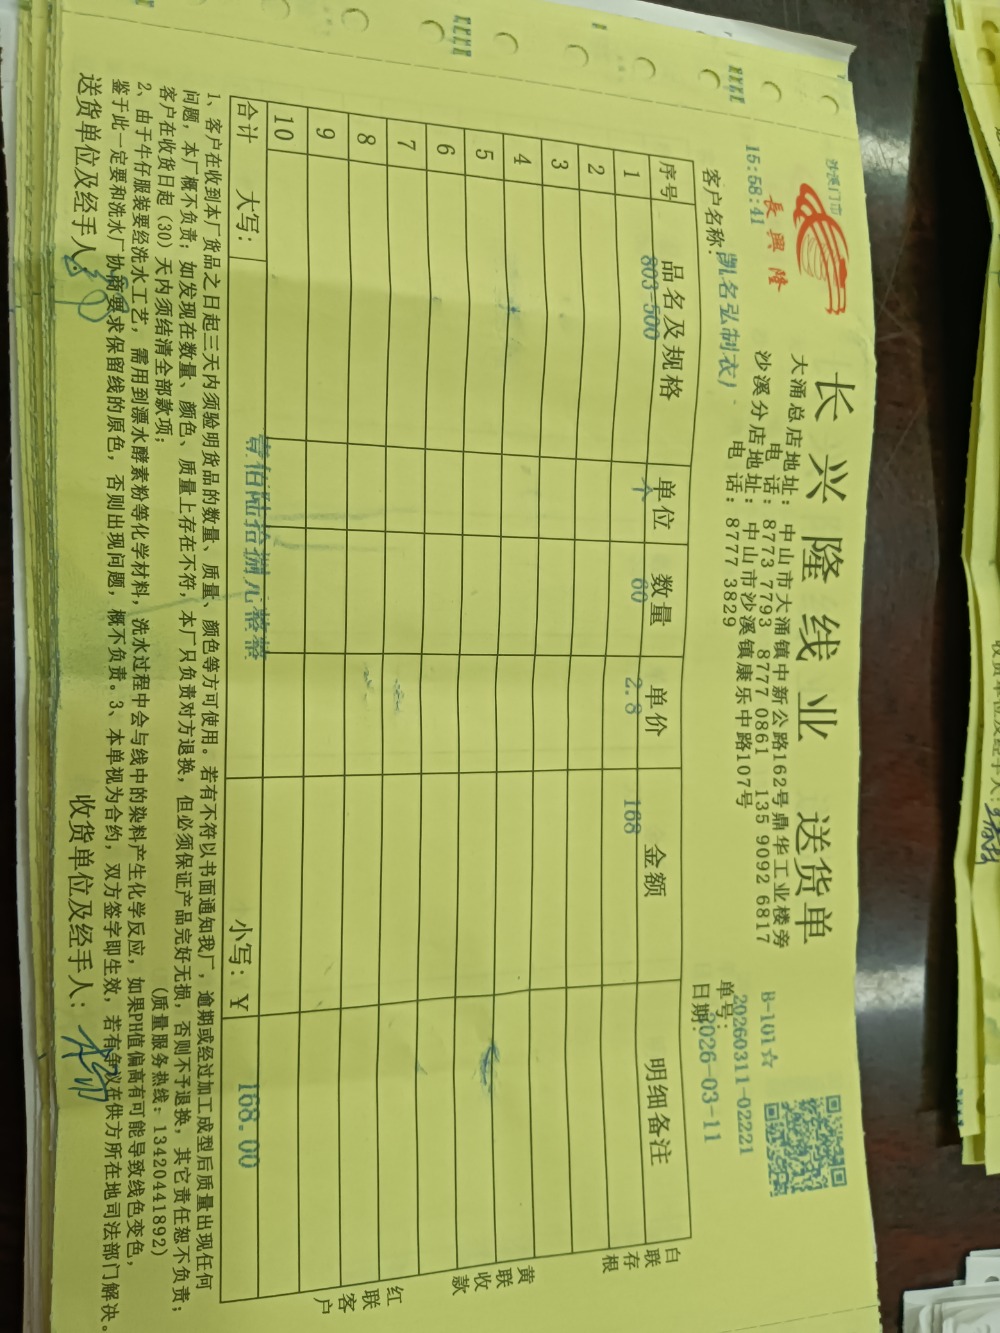 沙溪门市
長興隆
15:58:41
长兴隆线业 送货单
大涌总店地址：中山市大涌镇中新公路162号鼎华工业楼旁
电话：8773 7793 8777 0861 135 9092 6817
沙溪分店地址：中山市沙溪镇康乐中路107号
电话：8777 3829
B-101☆
单号：20260311-02221
日期：2026-03-11
客户名称：凯名弘制衣)
序号 品名及规格 单位 数量 单价 金额 明细备注
1 803-500 个 60 2.8 168
2
3
4
5
6
7
8
9
10
合计 大写： 壹佰陆拾捌元整整 小写：￥ 168.00
白联存根
黄联收款
红联客户
1、客户在收到本厂货品之日起三天内须验明货品的数量、质量、颜色等方可使用。若有不符以书面通知我厂，逾期或经过加工成型后质量出现任何
问题，本厂概不负责；如发现在数量、颜色、质量上存在不符，本厂只负责对方退换，但必须保证产品完好无损，否则不予退换，其它责任恕不负责；
客户在收货日起（30）天内须结清全部款项； （质量服务热线：13420441892）
2、由于牛仔服装要经洗水工艺，需用到漂水酵素粉等化学材料，洗水过程中会与线中的染料产生化学反应，如果PH值偏高有可能导致线色变色，
鉴于此一定要和洗水厂协商要求保留线的原色，否则出现问题，概不负责。3、本单视为合约，双方签字即生效，若有争议在供方所在地司法部门解决。
送货单位及经手人： 收货单位及经手人：